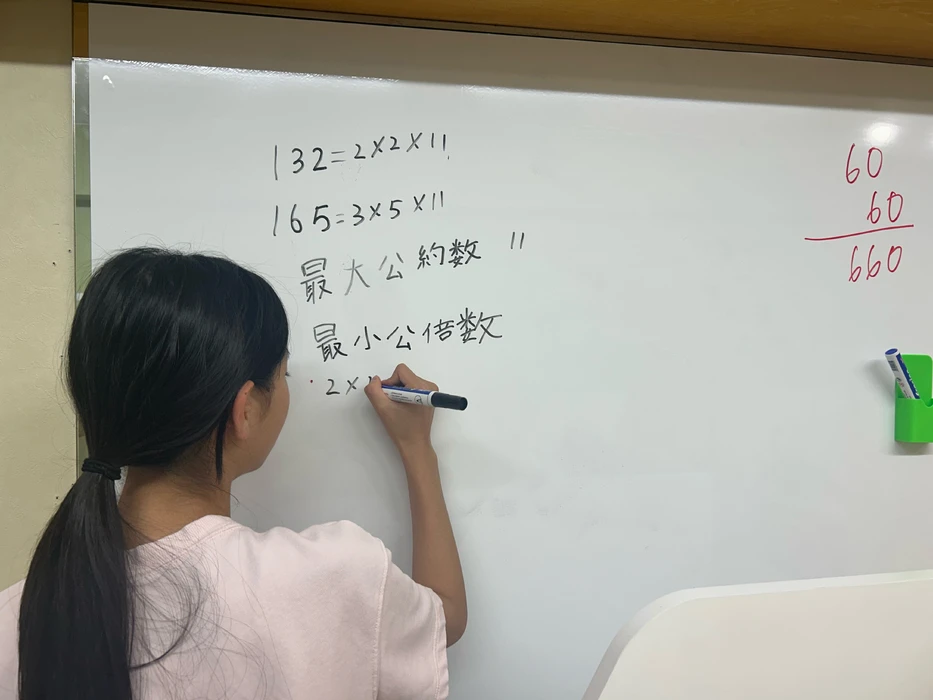 132=2×2×11
165=3×5×11
最大公約数 11
最小公倍数
2×
60
60
660